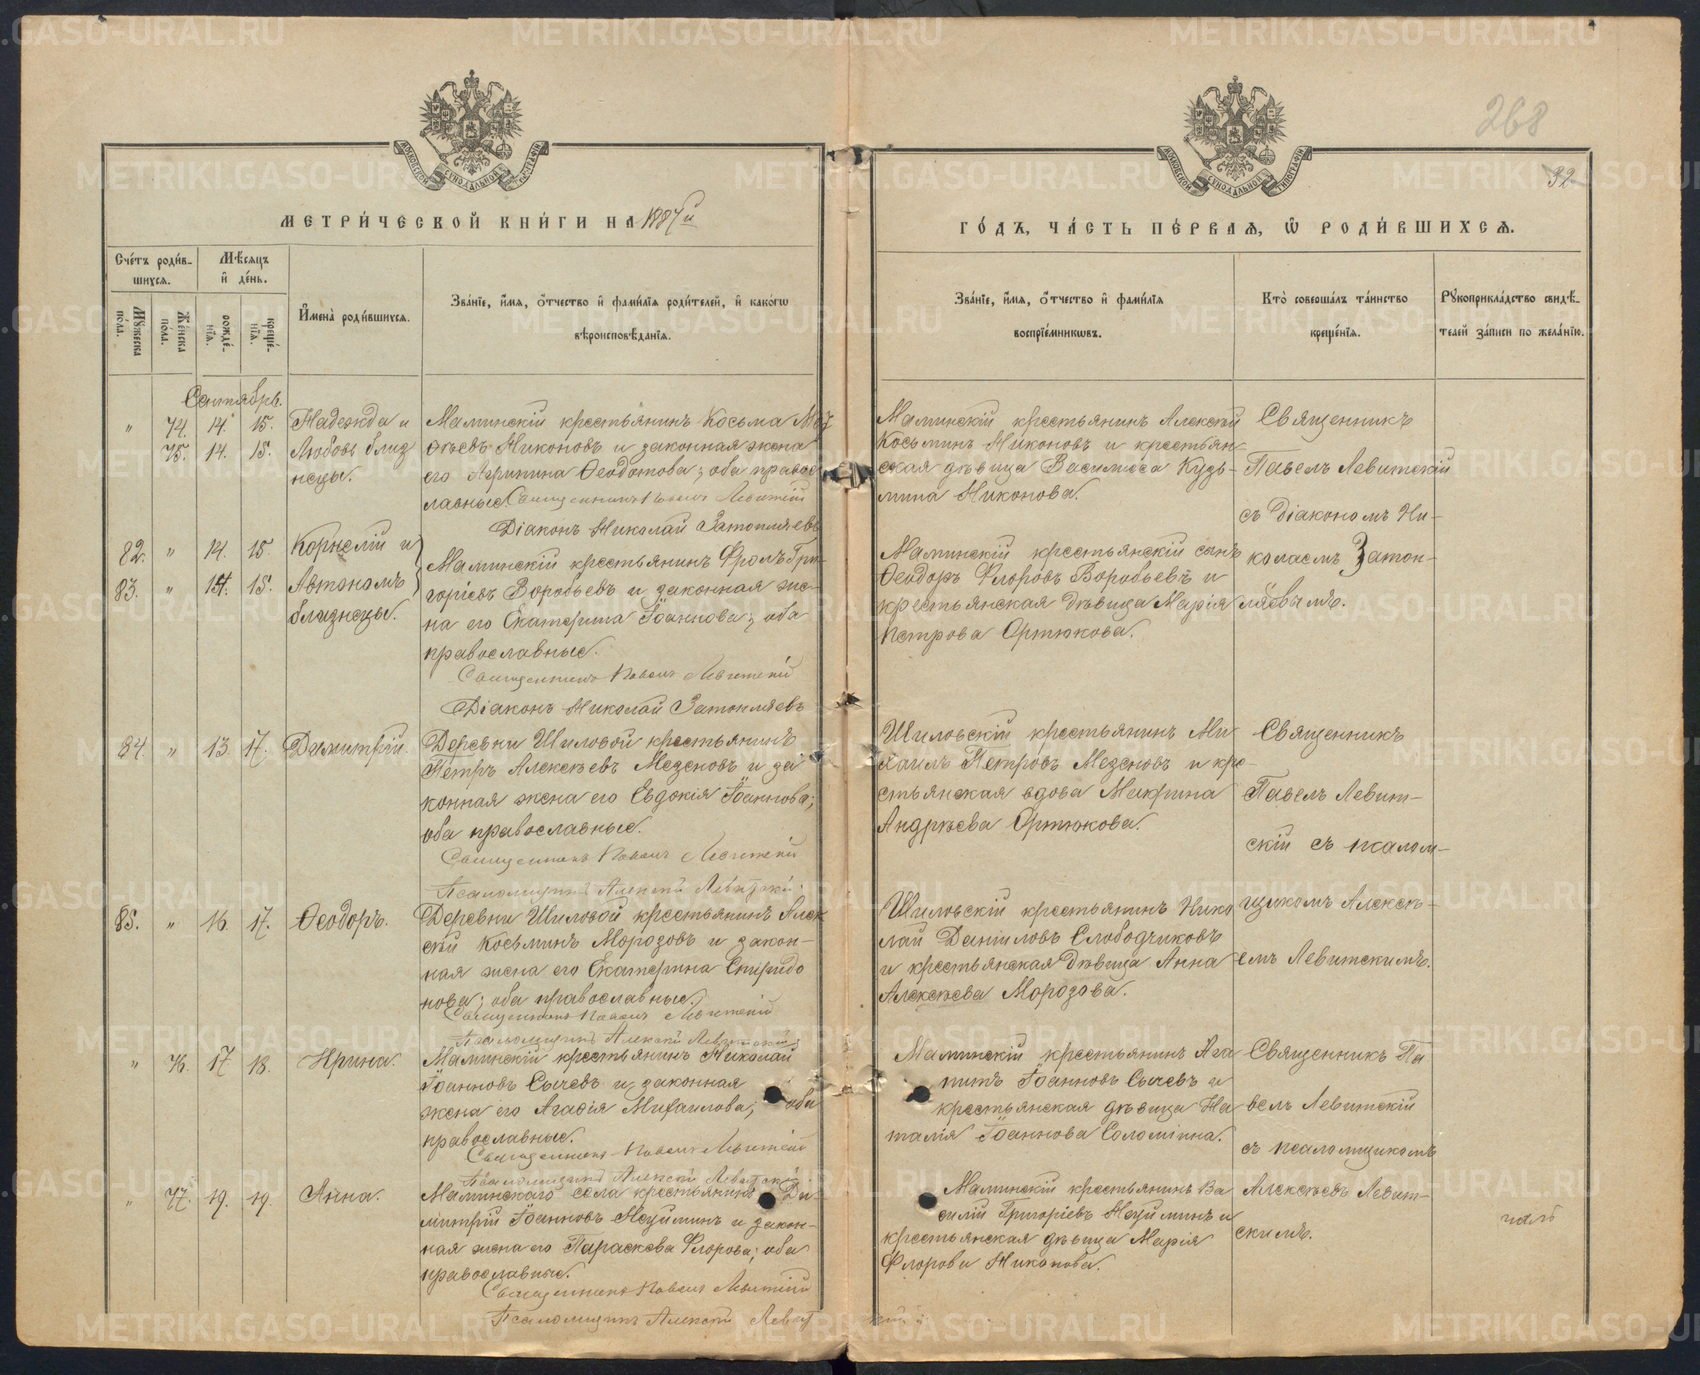 268
32
МЕТРИ́ЧЕСКОЙ КНИ́ГИ НА 1887й
ГО́ДЪ, ЧА́СТЬ ПЕ́РВАѦ, Ѽ РОДИ́ВШИХСѦ.
Сче́тъ роди́в-
шихсѧ.
Мѣ́сѧцъ
и҆ де́нь.
Мꙋ́жеска по́ла.
Же́нска по́ла.
рожде́-
нїѧ.
креще́-
нїѧ.
И҆мена̀ роди́вшихсѧ.
Зва́нїе, и҆́мѧ, ѻ҆́тчество и҆ фами́лїѧ роди́телей, и҆ како́гѡ
вѣроисповѣ́данїѧ.
Зва́нїе, и҆́мѧ, ѻ҆́тчество и҆ фами́лїѧ
воспрїе́мникѡвъ.
Кто̀ соверша́лъ та́инство
креще́нїѧ.
Рꙋкоприкла́дство свидѣ́-
телей за́писи по жела́нїю.
Сентябрь.
" 74. 14. 15. Надежда и
75. 14. 15. Любовь близ
нецы.
Маминскій крестьянинъ Косьма Мат
ѳѣевъ Никоновъ и законная жена
его Агрипина Ѳеодотова; оба правос
лавные. Священникъ Павелъ Левитскій
Діаконъ Николай Затопляевъ
Маминскій крестьянинъ Алексѣй
Косьминъ Никоновъ и крестьян-
ская дѣвица Василиса Кузь-
мина Никонова.
Священникъ
Павелъ Левитскій
съ діакономъ Ни-
колаемъ Затоп-
ляевымъ.
82. " 14. 15. Корнелій и
83. " 14. 15. Автономъ
близнецы.
Маминскій крестьянинъ Фролъ Гри-
горіевъ Воробьевъ и законная же-
на его Екатерина Іоаннова; оба
православные.
Священникъ Павелъ Левитскій
Діаконъ Николай Затопляевъ
Маминскій крестьянскій сынъ
Ѳеодоръ Флоровъ Воробьевъ и
крестьянская дѣвица Марія
Петрова Ортюкова.
84. " 13. 17. Димитрій.
Деревни Шиловой крестьянинъ
Петръ Алексѣевъ Мезеновъ и за
конная жена его Евдокія Іоаннова;
оба православные.
Священникъ Павелъ Левитскій
Псаломщикъ Алексѣй Левитскій.
Шиловскій крестьянинъ Ми
хаилъ Петровъ Мезеновъ и кре-
стьянская вдова Макрина
Андрѣева Ортюкова.
Священникъ
Павелъ Левит-
скій съ псалом-
щикомъ Алексѣ-
емъ Левитскимъ.
85. " 16. 17. Ѳеодоръ.
Деревни Шиловой крестьянинъ Алек
сѣй Косьминъ Морозовъ и закон-
ная жена его Екатерина Спиридо
нова; оба православные.
Священникъ Павелъ Левитскій
Псаломщикъ Алексѣй Левитскій
Шиловскій крестьянинъ Нико
лай Даніиловъ Слободчиковъ
и крестьянская дѣвица Анна
Алексѣева Морозова.
" 76. 17. 18. Ирина.
Маминскій крестьянинъ Николай
Іоанновъ Сычевъ и законная
жена его Агафія Михаилова; оба
православные.
Священникъ Павелъ Левитскій
Псаломщикъ Алексѣй Левитскій
Маминскій крестьянинъ Ага
питъ Іоанновъ Сычевъ и
крестьянская дѣвица На
талія Іоаннова Соломина.
Священникъ Па
велъ Левитскій
съ псаломщикомъ
Алексѣемъ Левит-
скимъ.
" 77. 19. 19. Анна.
Маминскаго села крестьянинъ Ди-
митрій Іоанновъ Неуйминъ и закон-
ная жена его Параскева Флорова; оба
православные.
Священникъ Павелъ Левитскій
Псаломщикъ Алексѣй Левитскій
Маминскій крестьянинъ Ва
силій Григоріевъ Неуйминъ и
крестьянская дѣвица Марія
Флорова Никонова.